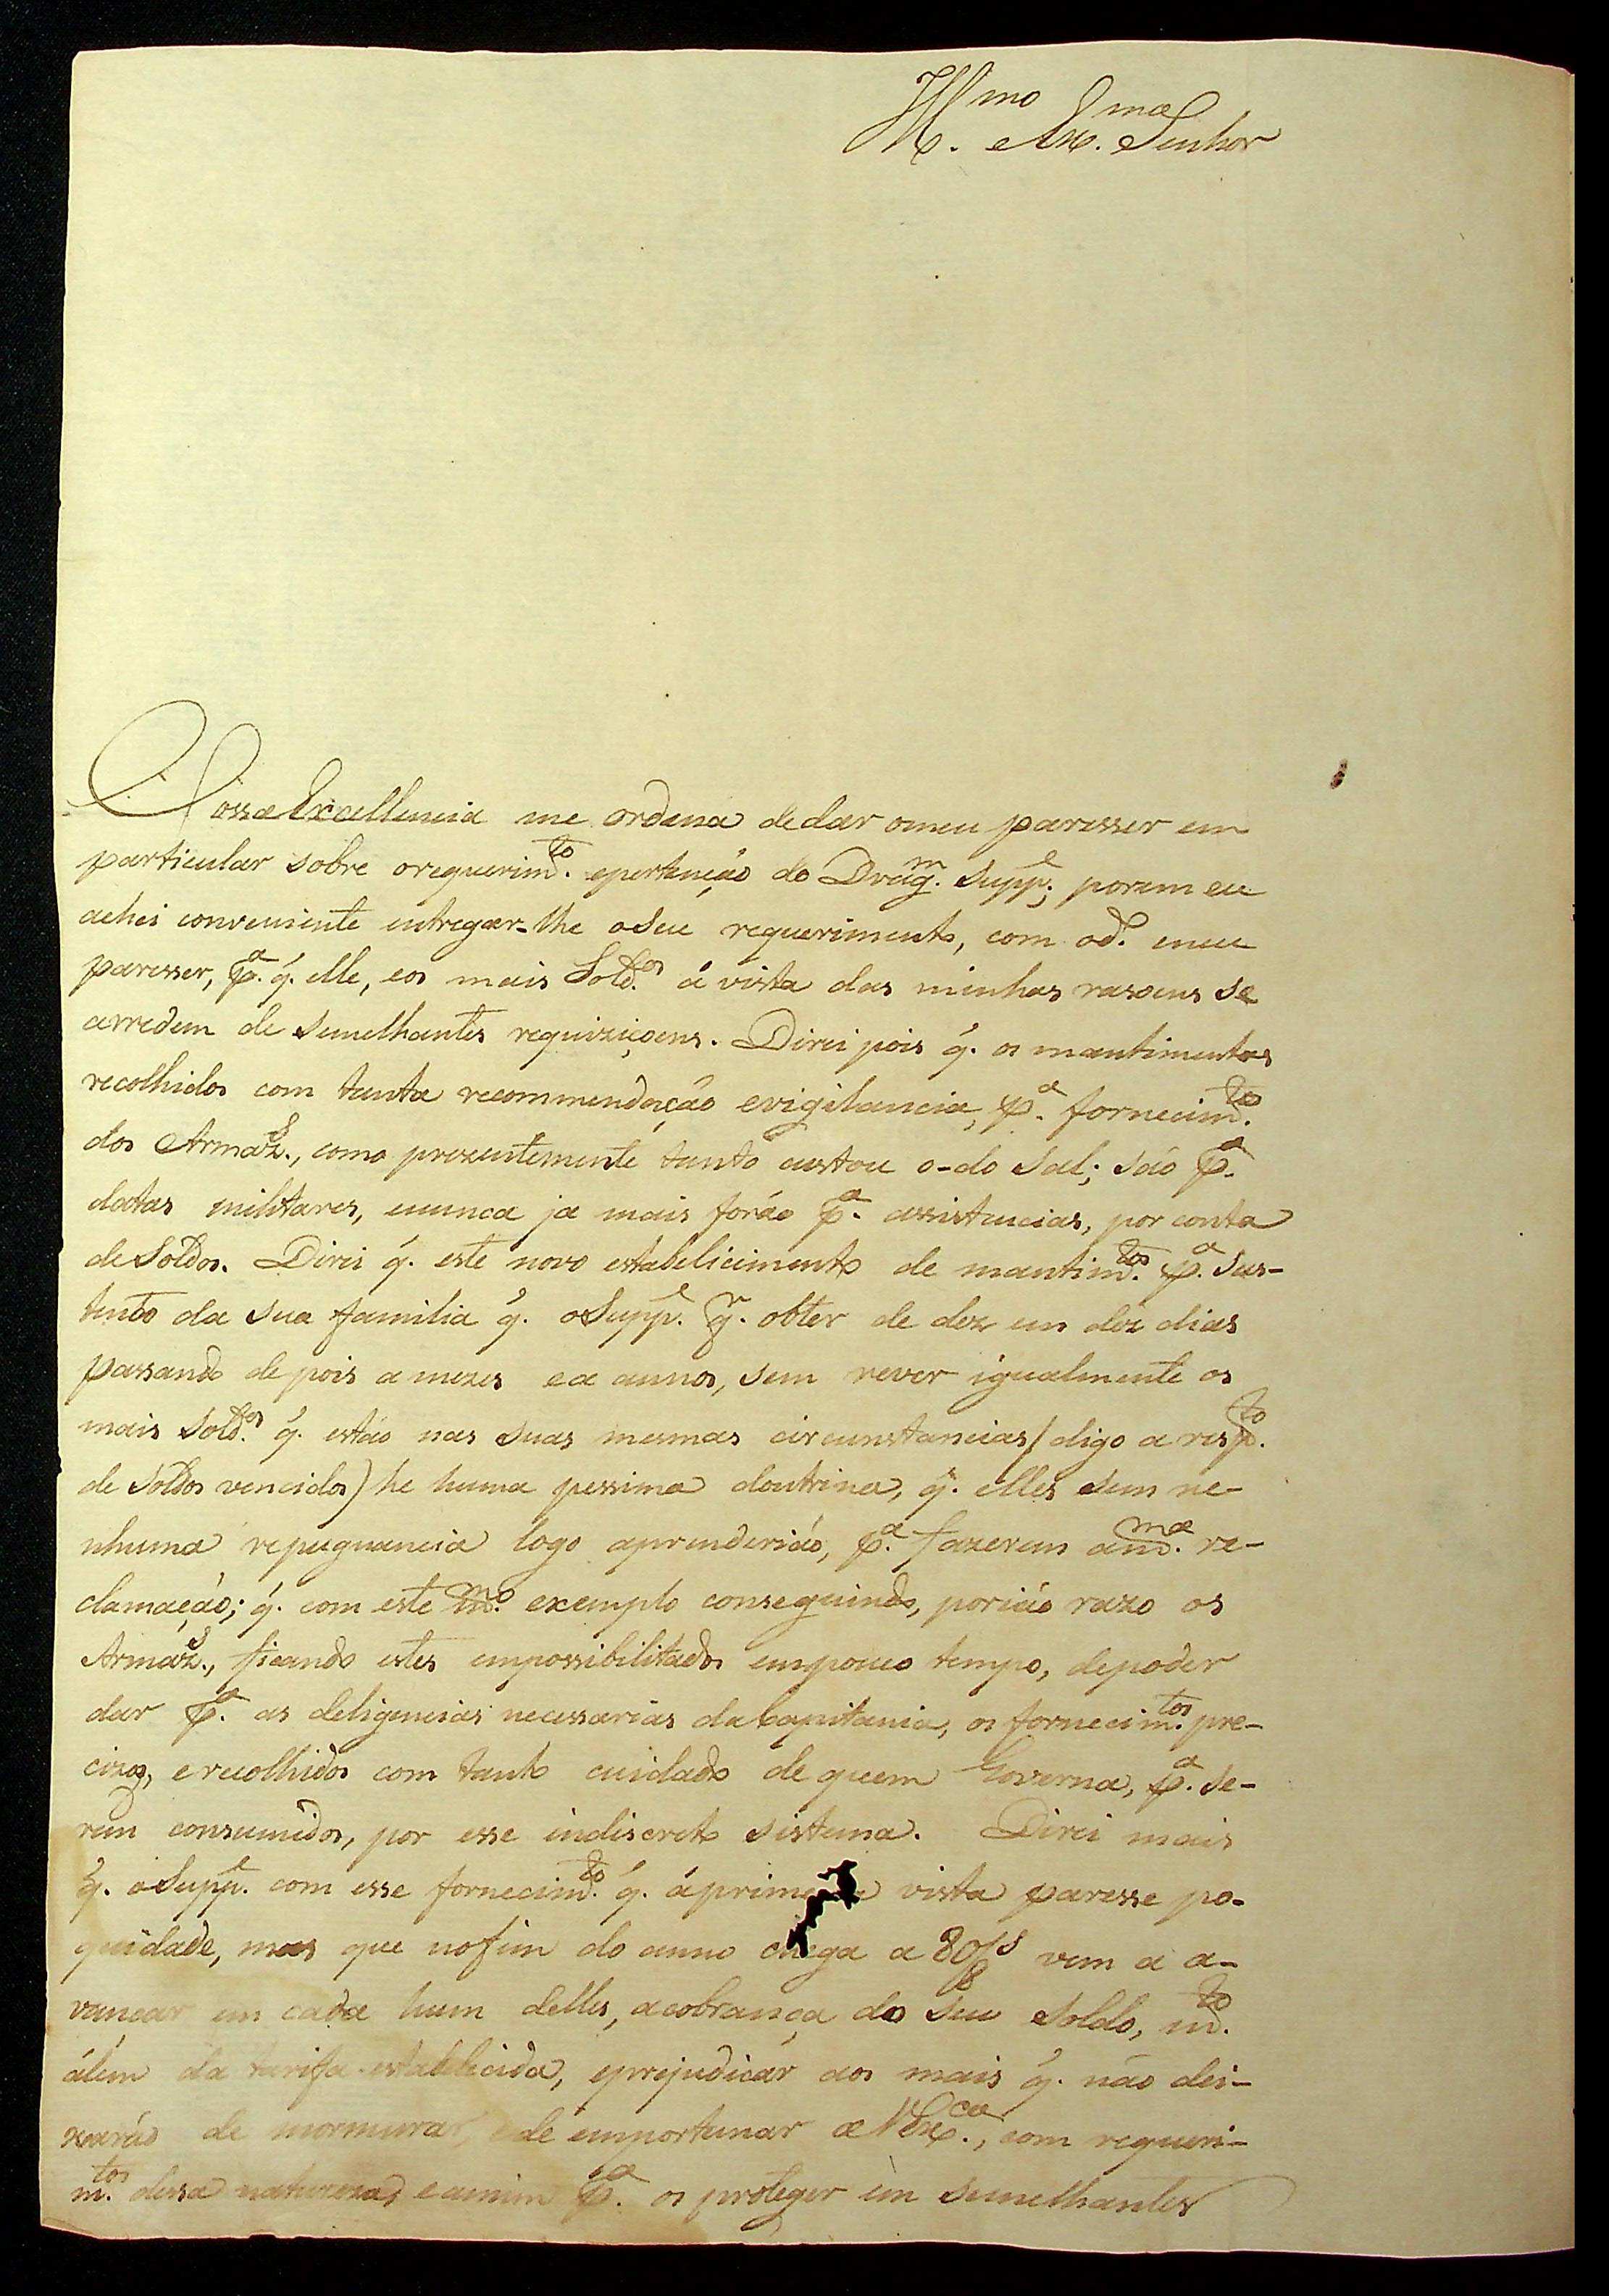 Ill.mo Ex.mo Senhor
Vossa Excellencia me ordena de dar o meu paresser em
particular sobre o requerim.to e pertenção do Drag.m Supp.e; porem eu
achei conveniente entregar-lhe o seu requerimento, com o d.o meu
paresser, p.a q. elle, e os mais Sold.os á vista das minhas rasoens se
arredem de semelhantes requiziçoens. Direi pois q. os mantimentos
recolhidos com tanta recommendação e vigilancia, p.a fornecim.to
dos Armaz.s, como prezentemente tanto custou o-do Sal; são p.a
datas militares, e nunca ja mais forão p.a assistencias, por conta
de Soldos. Direi q. este novo estabelicimento de mantim.tos p.a sus-
tento da sua familia q. o Supp.e q.r obter de dez em dez dias
passando depois a mezes e a annos, sem rever igualmente os
mais Sold.os q. estão nas suas mesmas circunstancias / digo a resp.to
de Soldos vencidos) he huma pessima doutrina, q. elles sem ne-
nhuma repugnancia logo aprenderião, p.a fazerem a m.ma re-
clamação; q. com este m.mo exemplo conseguindo, porião razo os
Armaz.s, ficando estes empossibilitados em pouco tempo, de poder
dar p.a as deligencias necessarias da Capitania, os fornecim.tos pre-
cizos, e recolhidos com tanto cuidado de quem Governa, p.a se-
rem consumidos, por esse indiscreto sistema. Direi mais
q. o Supp.e com esse fornecim.to q. á primeira vista paresse po-
quidade, mas que no fim do anno chega a 80/8.s vem a a-
vançar em cada hum delles, a cobrança do seu Soldo, m.to
álem da tarifa estabelecida, e prejudicár aos mais q. não dei-
xarão de mormurar, e de emportunar a V Ex.ca, com requeri-
m.tos dessa natureza, e amim p.a os proteger em semelhantes